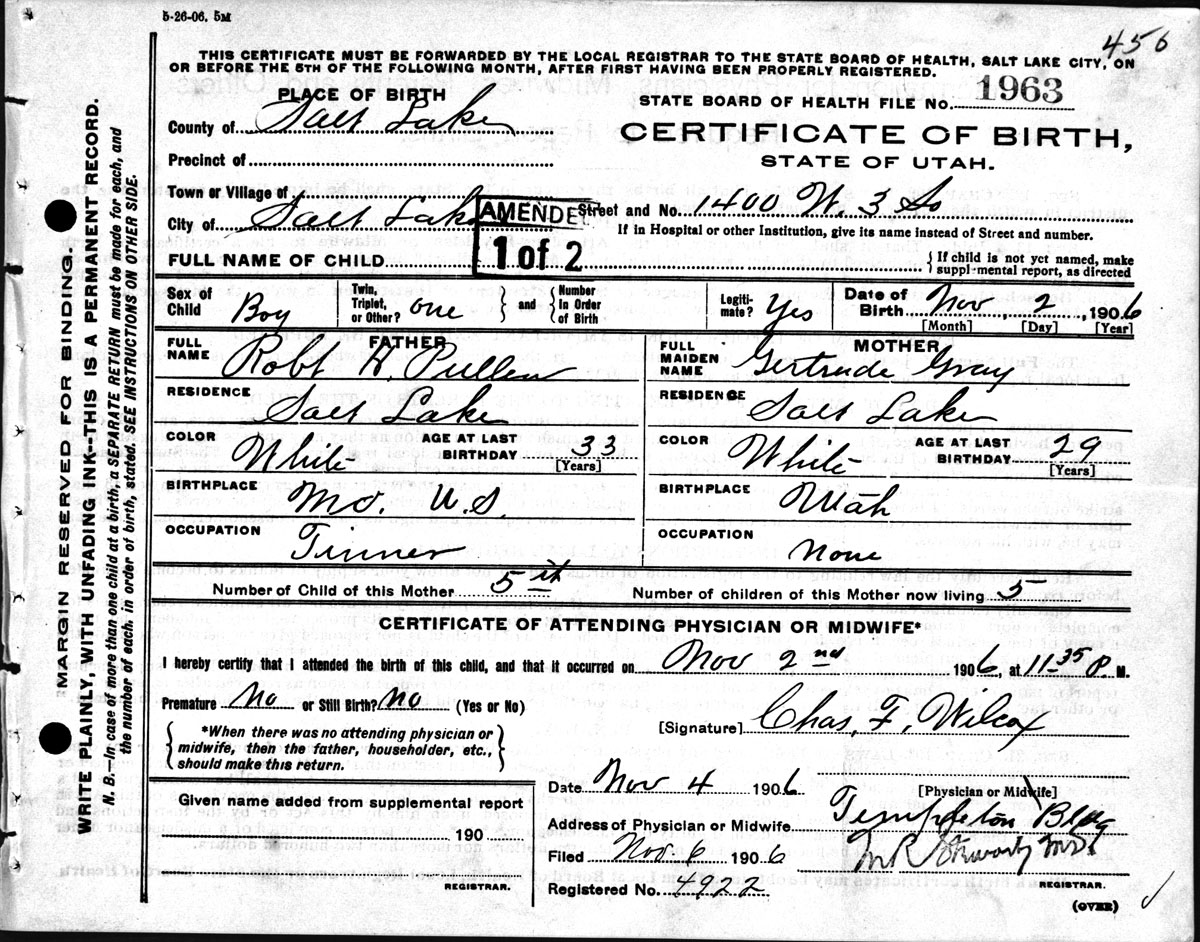 5-26-06. 5M
456
THIS CERTIFICATE MUST BE FORWARDED BY THE LOCAL REGISTRAR TO THE STATE BOARD OF HEALTH, SALT LAKE CITY, ON
OR BEFORE THE 5TH OF THE FOLLOWING MONTH, AFTER FIRST HAVING BEEN PROPERLY REGISTERED.
PLACE OF BIRTH
STATE BOARD OF HEALTH FILE No. 1963
County of Salt Lake
CERTIFICATE OF BIRTH,
Precinct of
STATE OF UTAH.
Town or Village of
City of Salt Lake
AMENDED
1 of 2
Street and No. 1400 W. 3 So
If in Hospital or other Institution, give its name instead of Street and number.
FULL NAME OF CHILD
{ If child is not yet named, make
supplemental report, as directed
Sex of Child Boy
Twin, Triplet, or Other? one
and { Number In Order of Birth
Legitimate? Yes
Date of Birth Nov 2, 1906
[Month] [Day] [Year]
FATHER
FULL NAME Robt H. Pullen
MOTHER
FULL MAIDEN NAME Gertrude Gray
RESIDENCE Salt Lake
RESIDENCE Salt Lake
COLOR White AGE AT LAST BIRTHDAY 33 [Years]
COLOR White AGE AT LAST BIRTHDAY 29 [Years]
BIRTHPLACE Mo. U.S.
BIRTHPLACE Utah
OCCUPATION Tinner
OCCUPATION None
Number of Child of this Mother 5th
Number of children of this Mother now living 5
CERTIFICATE OF ATTENDING PHYSICIAN OR MIDWIFE*
I hereby certify that I attended the birth of this child, and that it occurred on Nov 2nd 1906, at 11 35 P. M.
Premature No or Still Birth? No (Yes or No)
[Signature] Chas. F. Wilcox
{ *When there was no attending physician or
midwife, then the father, householder, etc.,
should make this return. }
Date Nov 4 1906
[Physician or Midwife]
Given name added from supplemental report
190
REGISTRAR.
Address of Physician or Midwife Templeton Bldg
Filed Nov. 6 1906
Registered No. 4922
REGISTRAR.
(OVER)
MARGIN RESERVED FOR BINDING.
WRITE PLAINLY, WITH UNFADING INK--THIS IS A PERMANENT RECORD.
N. B.—In case of more than one child at a birth, a SEPARATE RETURN must be made for each, and
the number of each, in order of birth, stated. SEE INSTRUCTIONS ON OTHER SIDE.